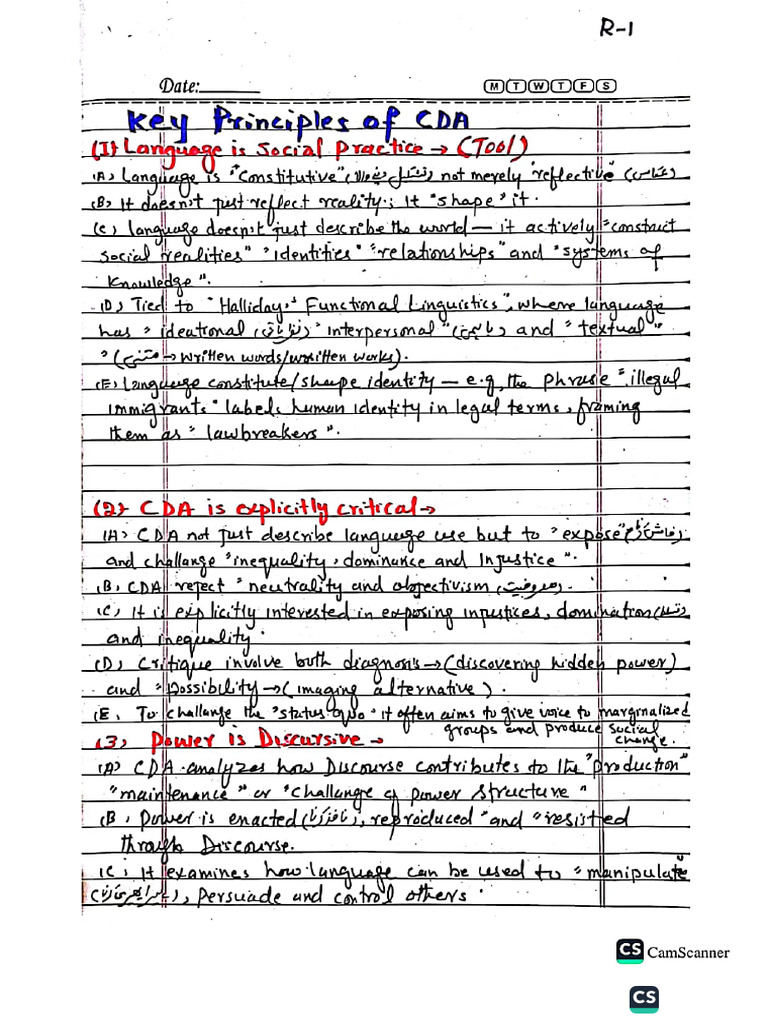 R-1
Date:
M T W T F S
Key Principles of CDA
(1) Language is Social Practice → (Tool)
(A) Language is "Constitutive" (تشکیل دینے والا) not merely "reflective" (عکاس)
(B) It doesn't just reflect reality; It "shape" it.
(C) language doesn't just describe the world — it actively "construct
social realities" "identities" "relationships" and "systems of
Knowledge".
(D) Tied to "Halliday's Functional Linguistics", where language
has "ideational (نظریاتی)" interpersonal" (باہمی) and "textual"
"(متنی → written words/written works).
(E) Language constitute/shape identity — e.g, the phrase "illegal
immigrants" labels human identity in legal terms, framing
them as "lawbreakers".
(2) CDA is explicitly critical →
(A) CDA not just describe language use but to "expose" (فاش کرنا)
and challange "inequality, dominance and Injustice".
(B) CDA reject "neutrality and objectivism (معروضیت).
(C) It is explicitly interested in exposing injustices, domination (تسلط)
and inequality.
(D) Critique involve both diagnosis → (discovering hidden power)
and "possibility → (imaging alternative).
(E) To challange the "status quo" it often aims to give voice to marginalized
groups and produce social
change.
(3) Power is Discursive →
(A) CDA analyzes how Discourse contributes to the "production"
"maintenance" or "challange of power structure"
(B) Power is enacted (نافذ کرنا), reproduced" and "resisted
through Discourse.
(C) It examines how language can be used to "manipulate"
, persuade and control others.
CS CamScanner
CS